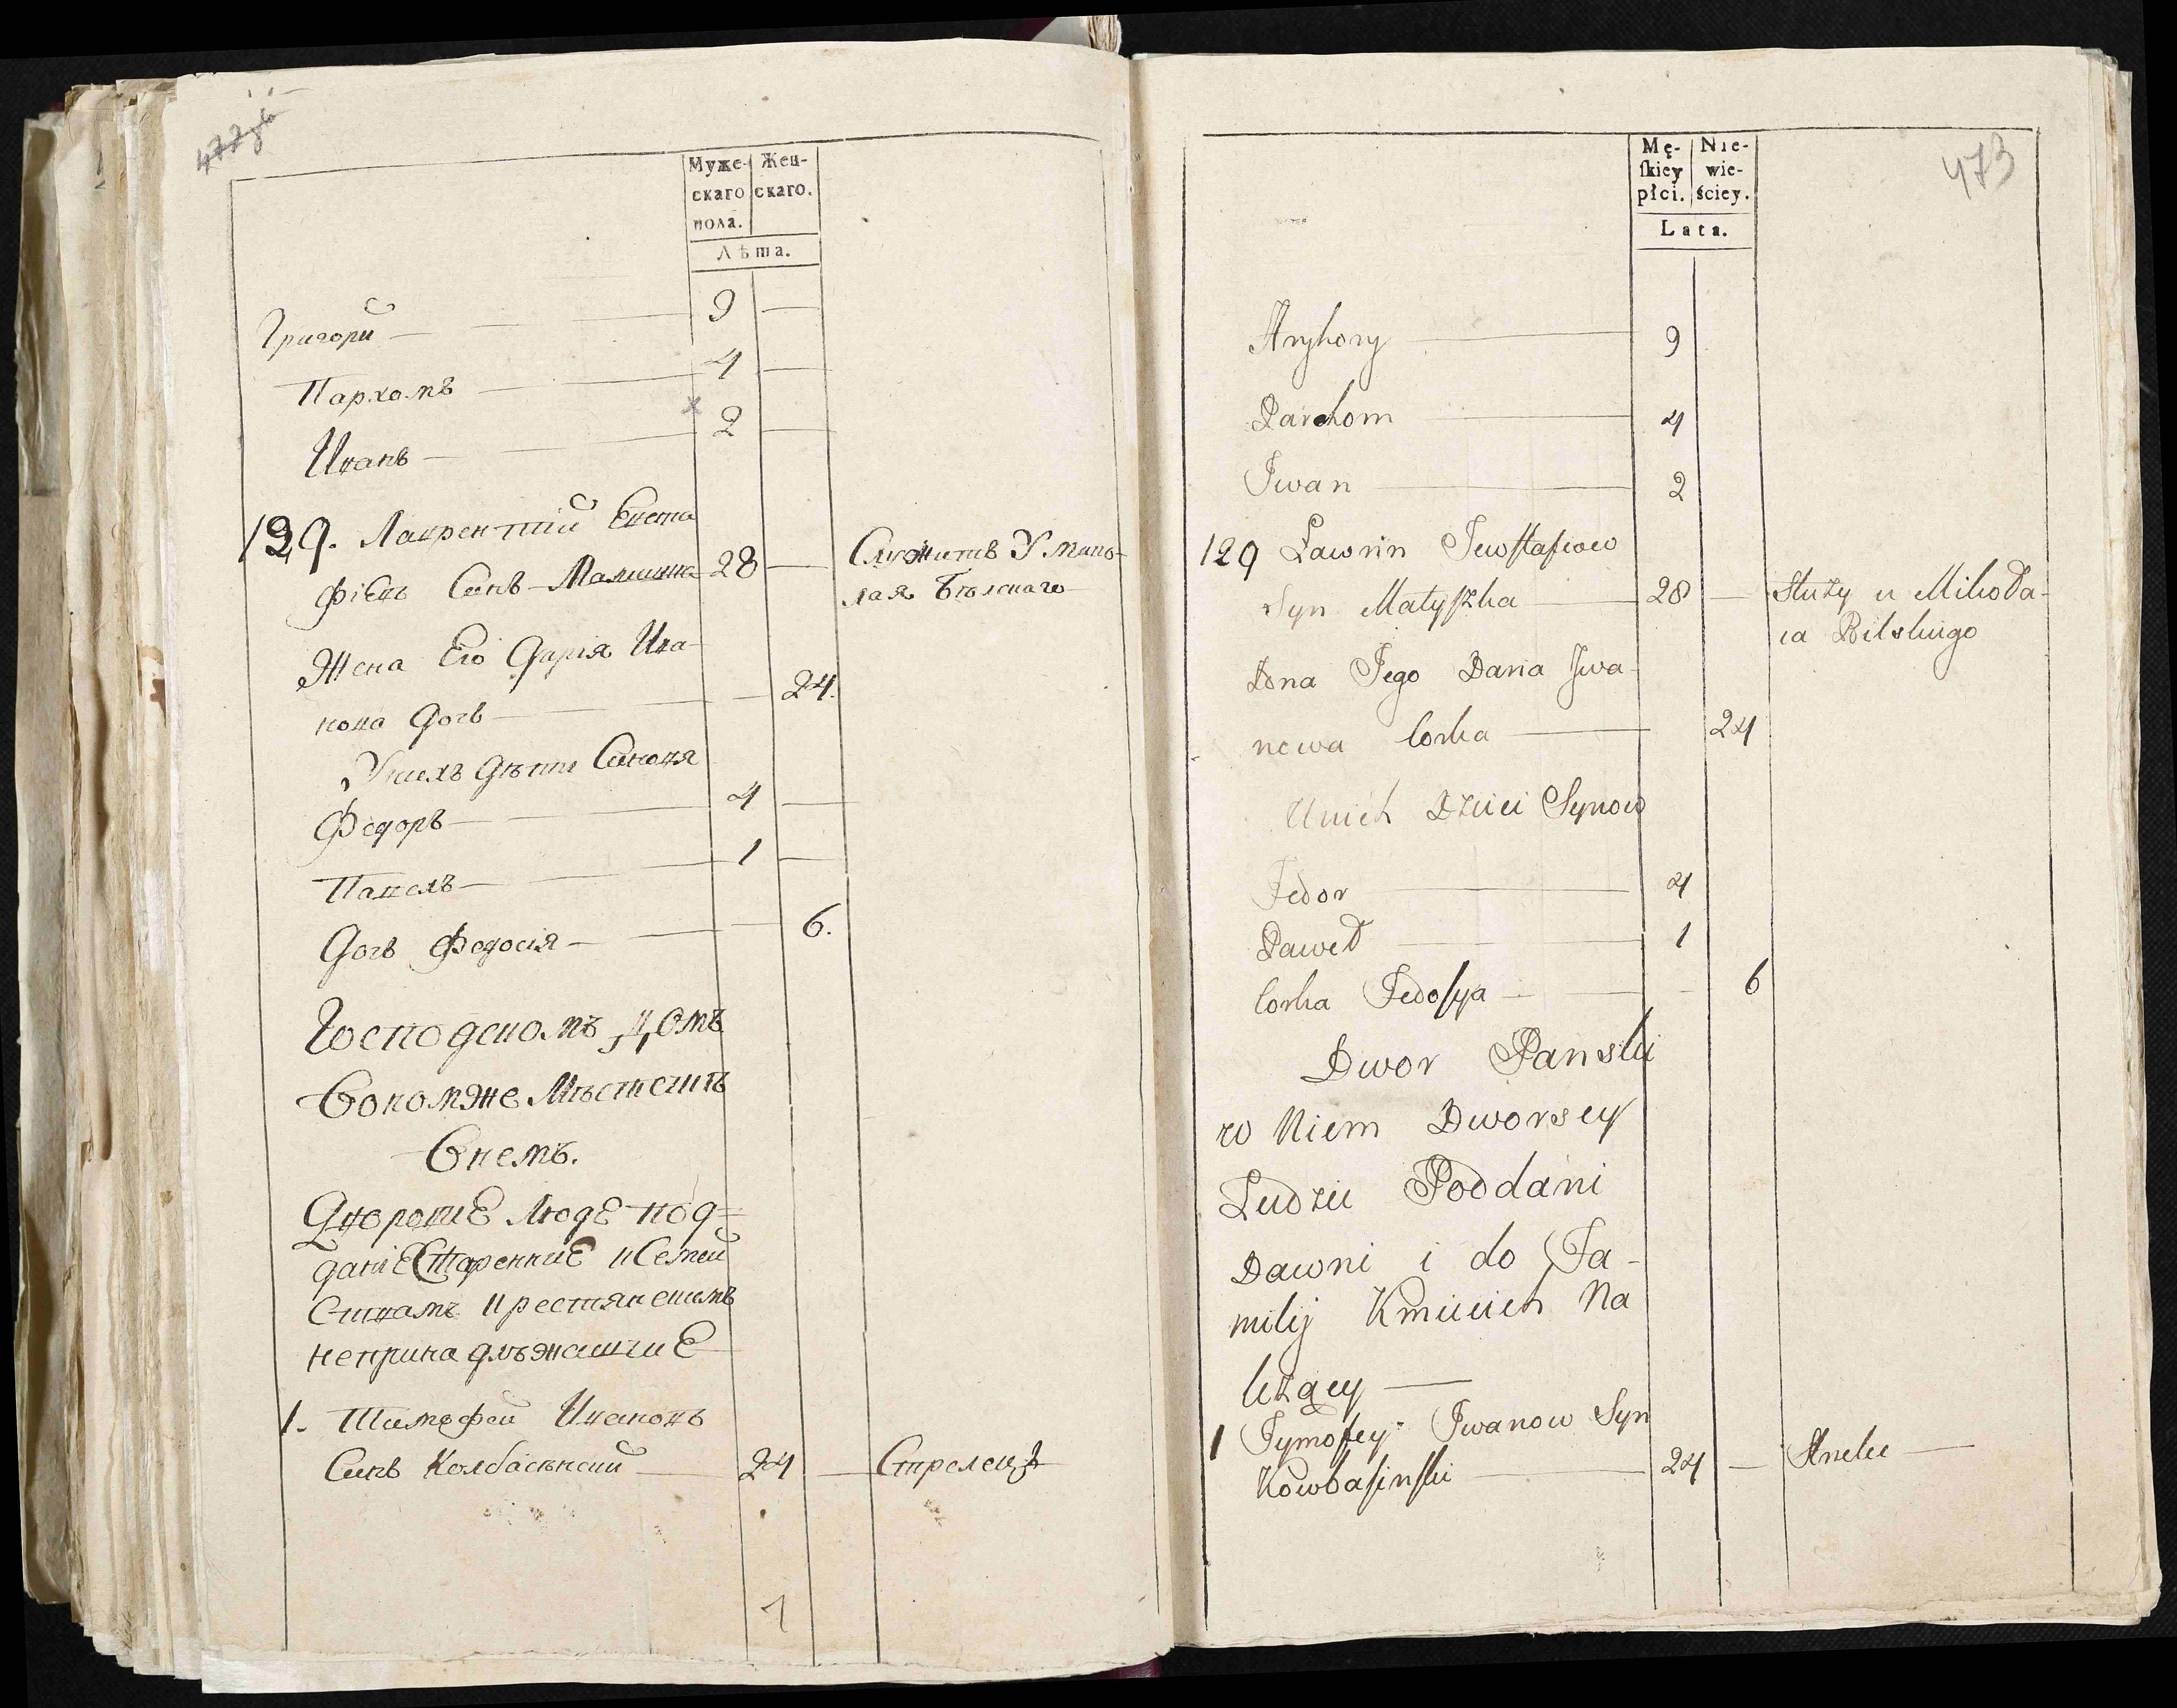 Муже- Жен-
скаго скаго.
пола.
Лѣта.
Григори 9 —
Пархомъ 4 —
Иванъ 2 —
129. Лаврентий Евста
фіевъ Синъ Матишка 28 — Служитъ У Мико-
лая Бѣлскаго
Жена Его Дарія Ива-
нова Дочь — 24.
У нихъ дѣти Синовя
Федоръ 4 —
Павелъ 1 —
Дочь Федосія — 6.
Господскомъ Домъ
Вономже Мѣстечить
Внемъ.
Дворские Люде под=
даніе Старенние и Семей
Ствамъ крестянскимъ
непринадлѣжащие
1. Тимофей Ивановъ
Синъ Колбасѣнский 24 — Стрелецъ
7
473
Mę- Nie-
ſkiey wie-
płci. ściey.
Lata.
Hryhory 9
Parchom 4
Iwan 2
129 Ławrin Jewstafiow
Syn Matyszka 28 — Służy u Mikoła-
ia Bilskiego
Żona Jego Daria Iwa-
nowa Corka 24
U nich Dzieci Synow
Fedor 4
Paweł 1
Corka Fedosya — 6
Dwor Panski
w Niem Dworscy
Ludzie Poddani
Dawni i do Fa-
milij Kmiecich Na
leżący —
1 Tymofey Iwanow Syn
Kowbasinski 24 — Strzelec —